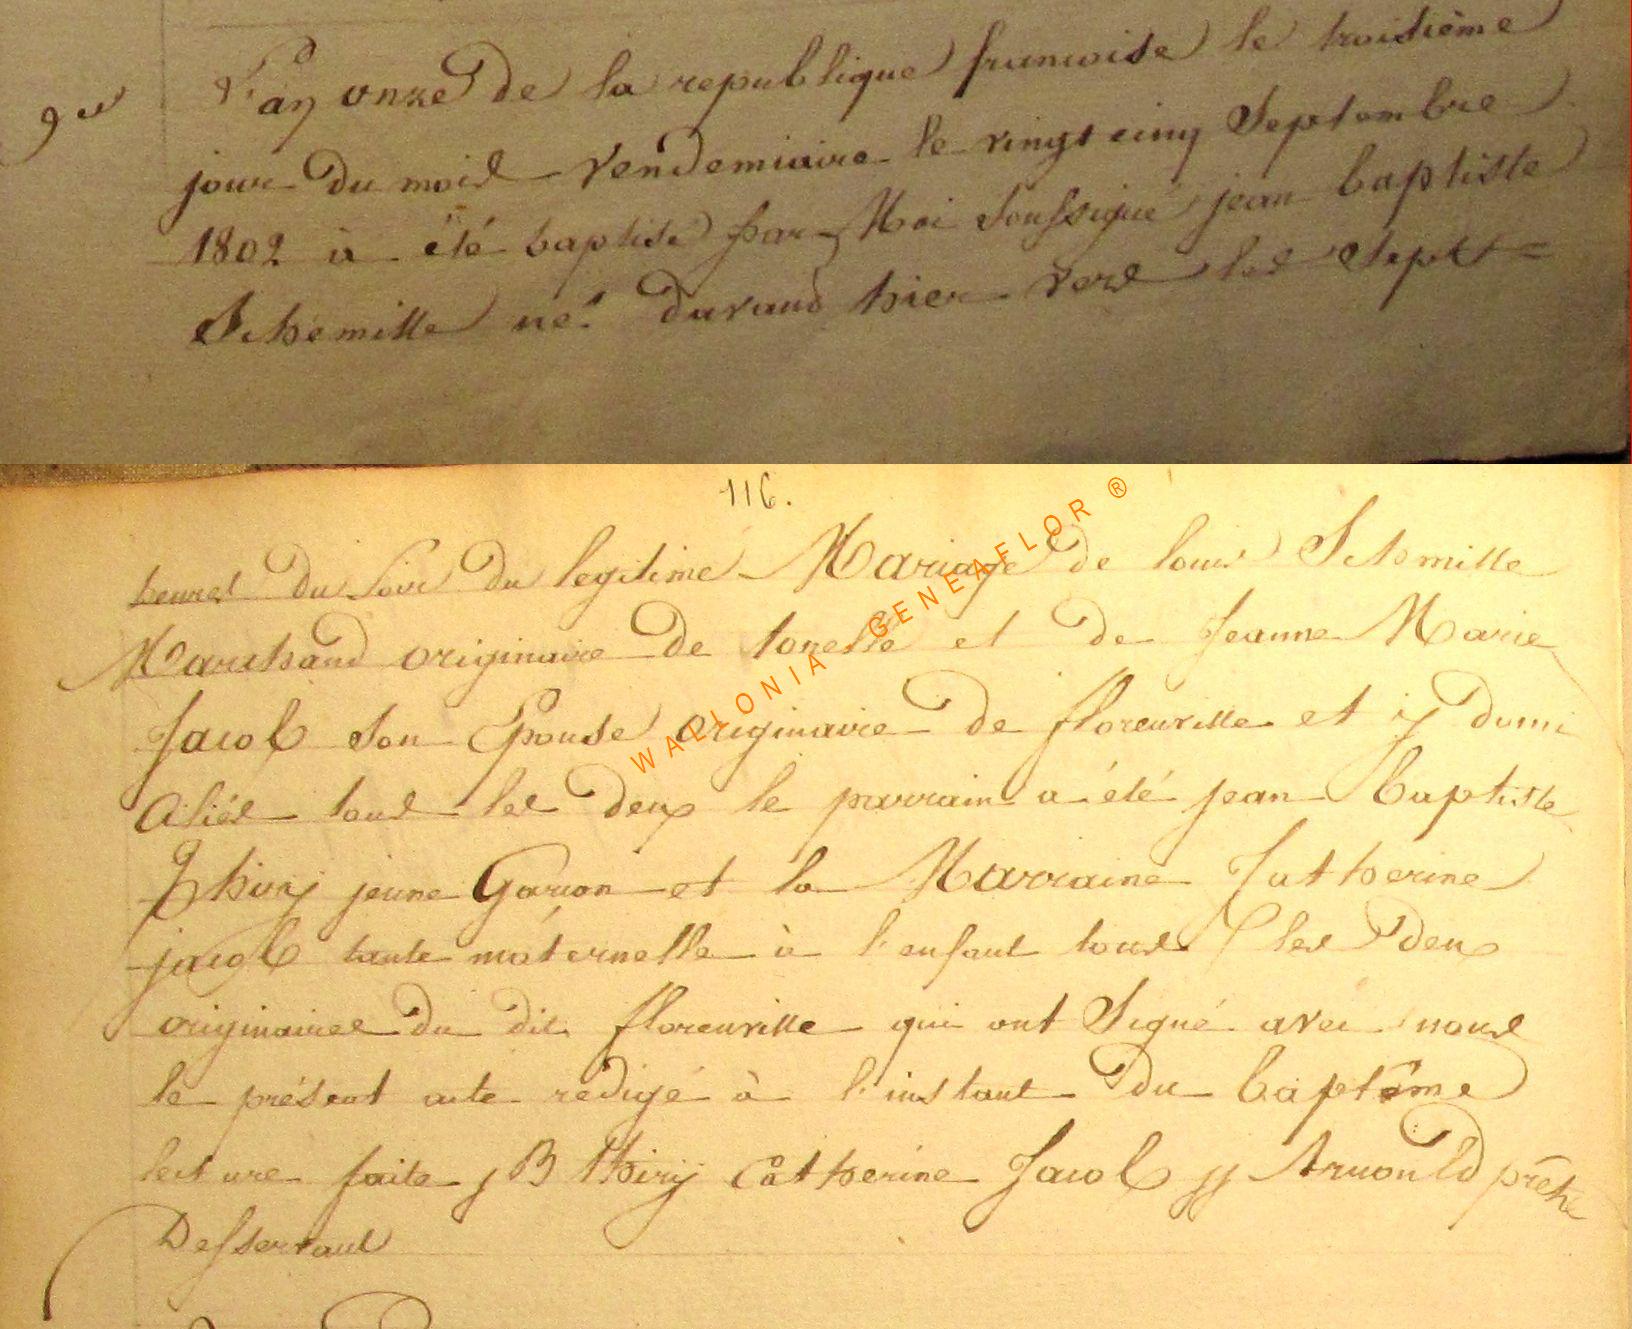 9e
L'an onze de la republique francoise le troisième
jour du mois vendemiaire le vingt cinq Septembre
1802 à été baptisé par Moi Soussigné jean baptiste
Schemille né durand hier vers les Sept =
116.
heures du Soir du legitime Mariage de louis Schmille
Marchand originaire de tonelle et de Jeanne Marie
Jacob Son Epouse originaire de florenville et y domi
ciliés tous les deux le parrain a été jean baptiste
Thiry jeune Garcon et la Marraine Catherine
jacob tante máternelle à l'enfant tous les deux
originaires du dit florenville qui ont Signé avec nous
le présent acte redigé à l'instant du baptême
lecture faite JB thiry Catherine Jacob jj Arnould prêtre
Desservant
WALLONIA GENEAFLOR ®